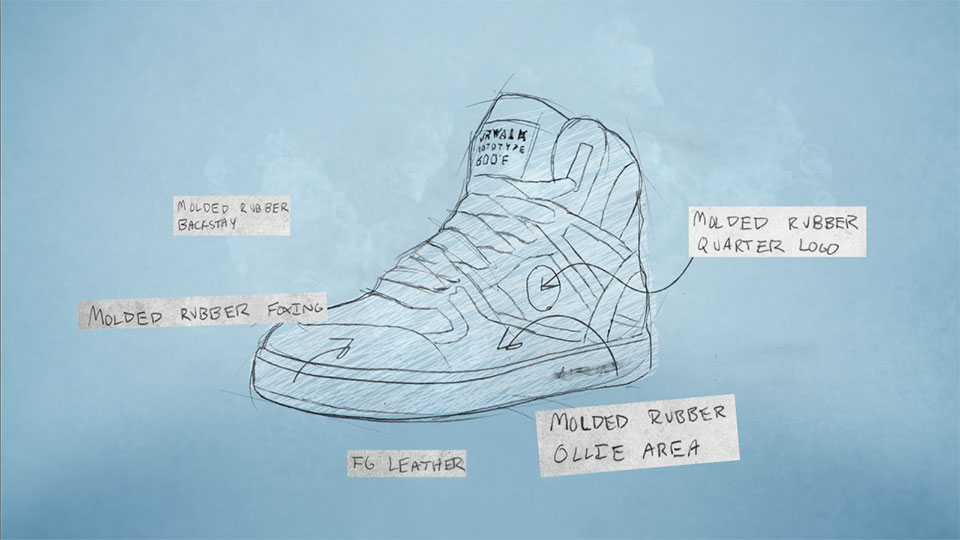 PROTOTYPE
600°F
MOLDED RUBBER
BACKSTAY
MOLDED RUBBER
QUARTER LOGO
MOLDED RUBBER FOXING
MOLDED RUBBER
OLLIE AREA
FG LEATHER